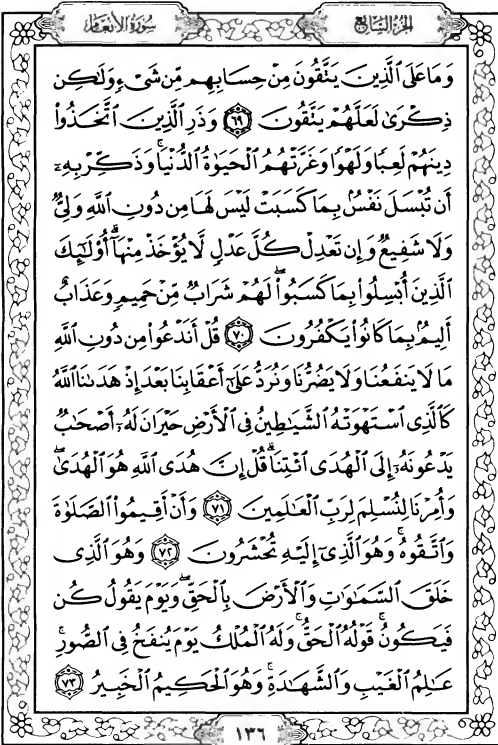 سُورَةُ الأنعَام
الجُزءُ السَّابِع
وَمَا عَلَى ٱلَّذِينَ يَتَّقُونَ مِنْ حِسَابِهِم مِّن شَىْءٍ وَلَٰكِن
ذِكْرَىٰ لَعَلَّهُمْ يَتَّقُونَ ٦٩ وَذَرِ ٱلَّذِينَ ٱتَّخَذُوا۟
دِينَهُمْ لَعِبًا وَلَهْوًا وَغَرَّتْهُمُ ٱلْحَيَوٰةُ ٱلدُّنْيَا ۚ وَذَكِّرْ بِهِۦٓ
أَن تُبْسَلَ نَفْسٌۢ بِمَا كَسَبَتْ لَيْسَ لَهَا مِن دُونِ ٱللَّهِ وَلِىٌّ
وَلَا شَفِيعٌ وَإِن تَعْدِلْ كُلَّ عَدْلٍ لَّا يُؤْخَذْ مِنْهَآ ۗ أُو۟لَٰٓئِكَ
ٱلَّذِينَ أُبْسِلُوا۟ بِمَا كَسَبُوا۟ ۖ لَهُمْ شَرَابٌ مِّنْ حَمِيمٍ وَعَذَابٌ
أَلِيمٌۢ بِمَا كَانُوا۟ يَكْفُرُونَ ٧٠ قُلْ أَنَدْعُوا۟ مِن دُونِ ٱللَّهِ
مَا لَا يَنفَعُنَا وَلَا يَضُرُّنَا وَنُرَدُّ عَلَىٰٓ أَعْقَابِنَا بَعْدَ إِذْ هَدَىٰنَا ٱللَّهُ
كَٱلَّذِى ٱسْتَهْوَتْهُ ٱلشَّيَٰطِينُ فِى ٱلْأَرْضِ حَيْرَانَ لَهُۥٓ أَصْحَٰبٌ
يَدْعُونَهُۥٓ إِلَى ٱلْهُدَى ٱئْتِنَا ۗ قُلْ إِنَّ هُدَى ٱللَّهِ هُوَ ٱلْهُدَىٰ ۖ
وَأُمِرْنَا لِنُسْلِمَ لِرَبِّ ٱلْعَٰلَمِينَ ٧١ وَأَنْ أَقِيمُوا۟ ٱلصَّلَوٰةَ
وَٱتَّقُوهُ ۚ وَهُوَ ٱلَّذِىٓ إِلَيْهِ تُحْشَرُونَ ٧٢ وَهُوَ ٱلَّذِى
خَلَقَ ٱلسَّمَٰوَٰتِ وَٱلْأَرْضَ بِٱلْحَقِّ ۖ وَيَوْمَ يَقُولُ كُن
فَيَكُونُ ۚ قَوْلُهُ ٱلْحَقُّ ۚ وَلَهُ ٱلْمُلْكُ يَوْمَ يُنفَخُ فِى ٱلصُّورِ ۚ
عَٰلِمُ ٱلْغَيْبِ وَٱلشَّهَٰدَةِ ۚ وَهُوَ ٱلْحَكِيمُ ٱلْخَبِيرُ ٧٣
١٣٦